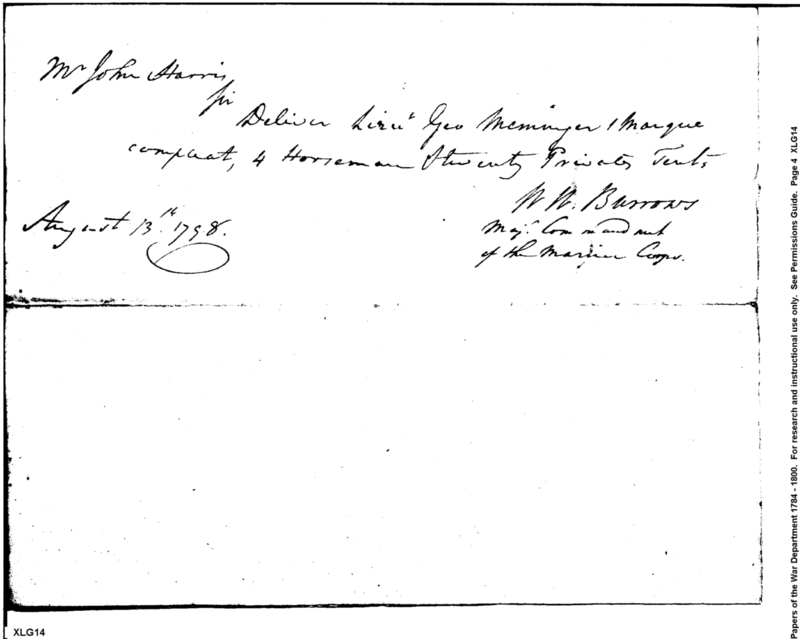 Mr John Harris
Sir
Deliver Lieut Geo Memminger 1 Marque
compleat, 4 Horseman & twenty Privates Tents
W W. Burrows
Majr. Commandant
of the Marine Corps.
August 13th. 1798.
Papers of the War Department 1784 - 1800. For research and instructional use only. See Permissions Guide. Page 4 XLG14
XLG14